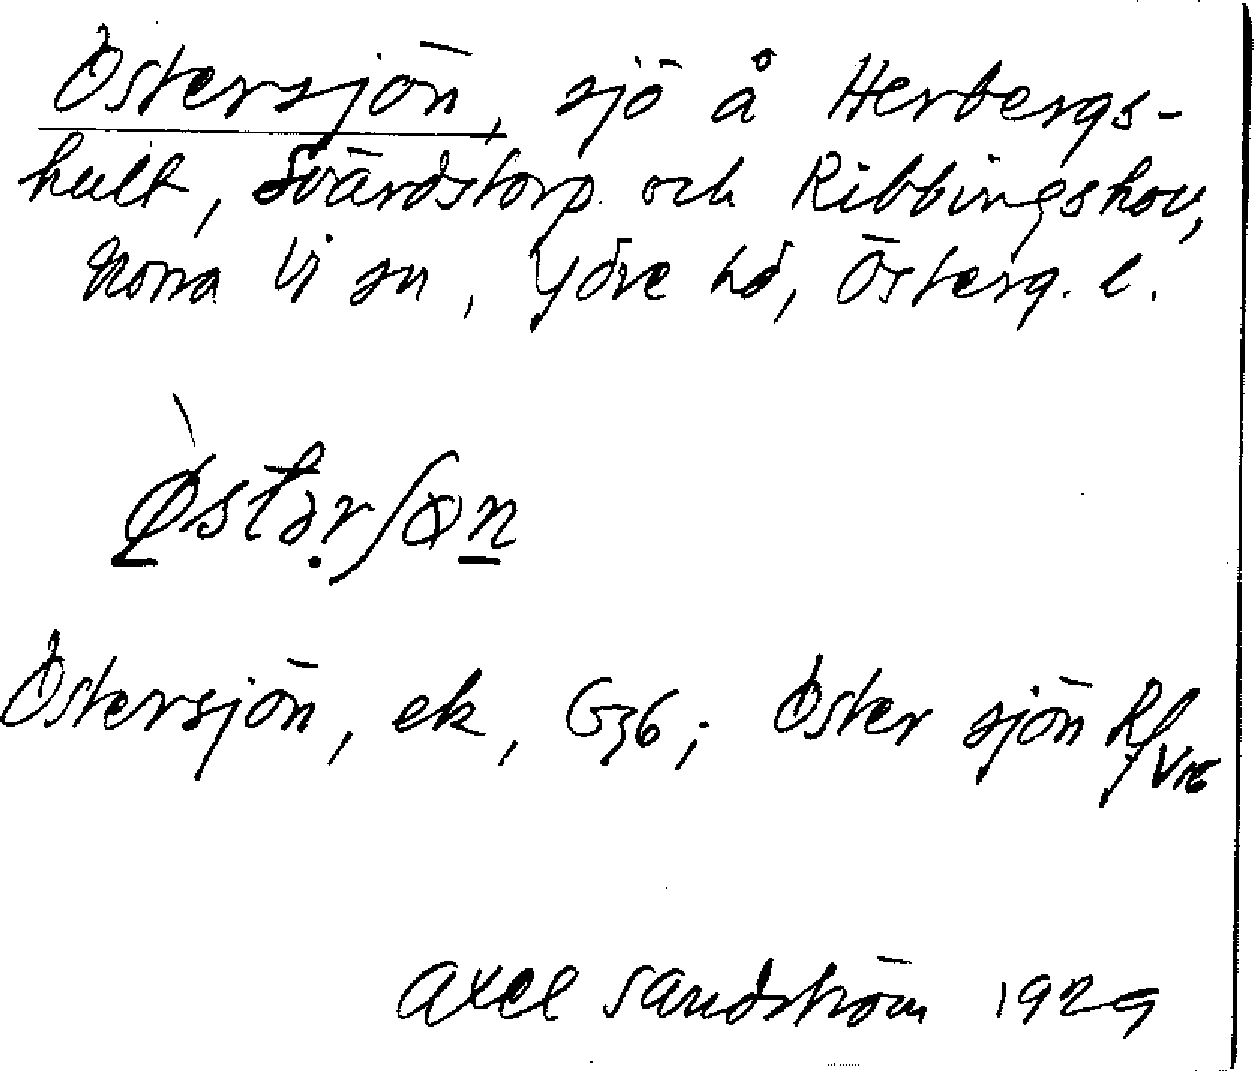 Östersjön, sjö å Herbergs-
hult, Svärdstorp och Ribbingshov,
Norra Vi sn, Ydre hd, Österg. l.
Östersjön, ek, G36; Öster sjön Rf
Axel Sandström 1929